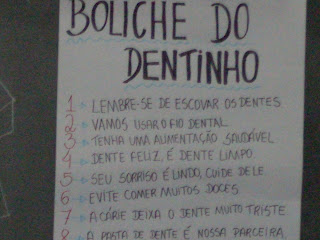 BOLICHE DO
DENTINHO
1 → LEMBRE-SE DE ESCOVAR OS DENTES
2 → VAMOS USAR O FIO DENTAL
3 → TENHA UMA ALIMENTAÇÃO SAUDÁVEL
4 → DENTE FELIZ, É DENTE LIMPO
5 → SEU SORRISO É LINDO, CUIDE DELE
6 → EVITE COMER MUITOS DOCES
7 → A CÁRIE DEIXA O DENTE MUITO TRISTE
8 → A PASTA DE DENTE É NOSSA PARCEIRA